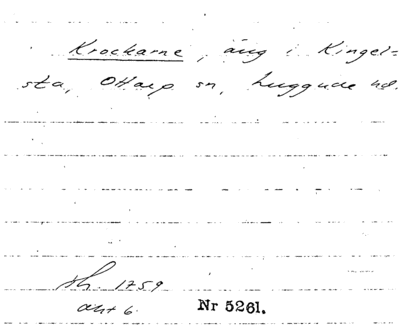 Krockarne, äng i Kingel=
sta, Ottarp sn, Luggude hd.
sh. 1759
akt 6.
Nr 5261.